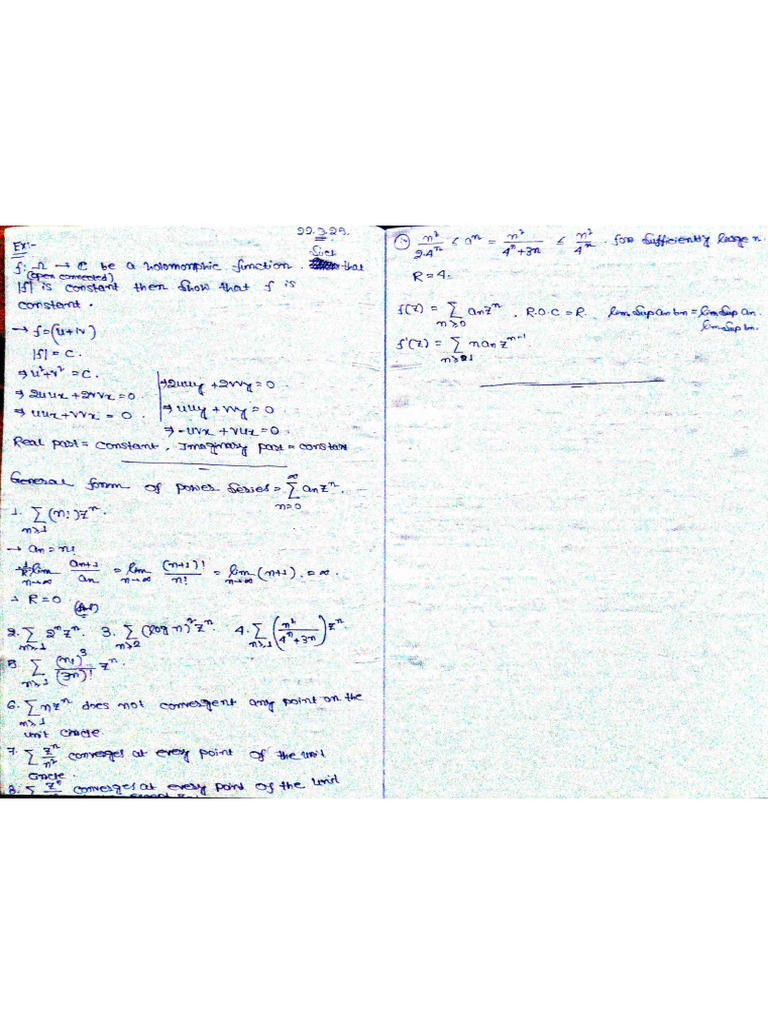 22.7.25.
Ex:-
f: Ω → ℂ be a holomorphic function. Such that
(open connected)
|f| is constant then show that f is
constant.
→ f=(u+iv)
|f| = c.
⇒ u²+v² = c.
⇒ 2uux + 2vvx = 0.
⇒ uux + vvx = 0.
⇒ 2uuy + 2vvy = 0.
⇒ uuy + vvy = 0.
⇒ -uvx + vux = 0.
Real part = constant, Imaginary part = constant
General form of power series = ∑_{n=0}^{∞} anzⁿ.
1. ∑_{n≥1} (n!)zⁿ.
→ an = n!
lim_{n→∞} an+1/an = lim_{n→∞} (n+1)!/n! = lim_{n→∞} (n+1) = ∞.
∴ R=0
2. ∑_{n≥1} 2ⁿzⁿ. 3. ∑_{n≥2} (log n)²zⁿ 4. ∑_{n≥1} (n²/(4ⁿ+3n)) zⁿ.
5. ∑_{n≥1} (n!)³/(3n)! zⁿ.
6. ∑_{n≥1} nzⁿ does not convergent any point on the
unit circle
7. ∑ zⁿ/n² converges at every point of the unit
circle.
8. ∑ zⁿ converges at every point of the unit
n²/2·4ⁿ ≤ aⁿ = n²/(4ⁿ+3n) ≤ n²/4ⁿ. for sufficiently large n.
R=4.
f(z) = ∑_{n≥0} anzⁿ. R.O.C = R. lim sup an bn = lim sup an.
lim sup bn.
f'(z) = ∑_{n≥1} nanzⁿ⁻¹